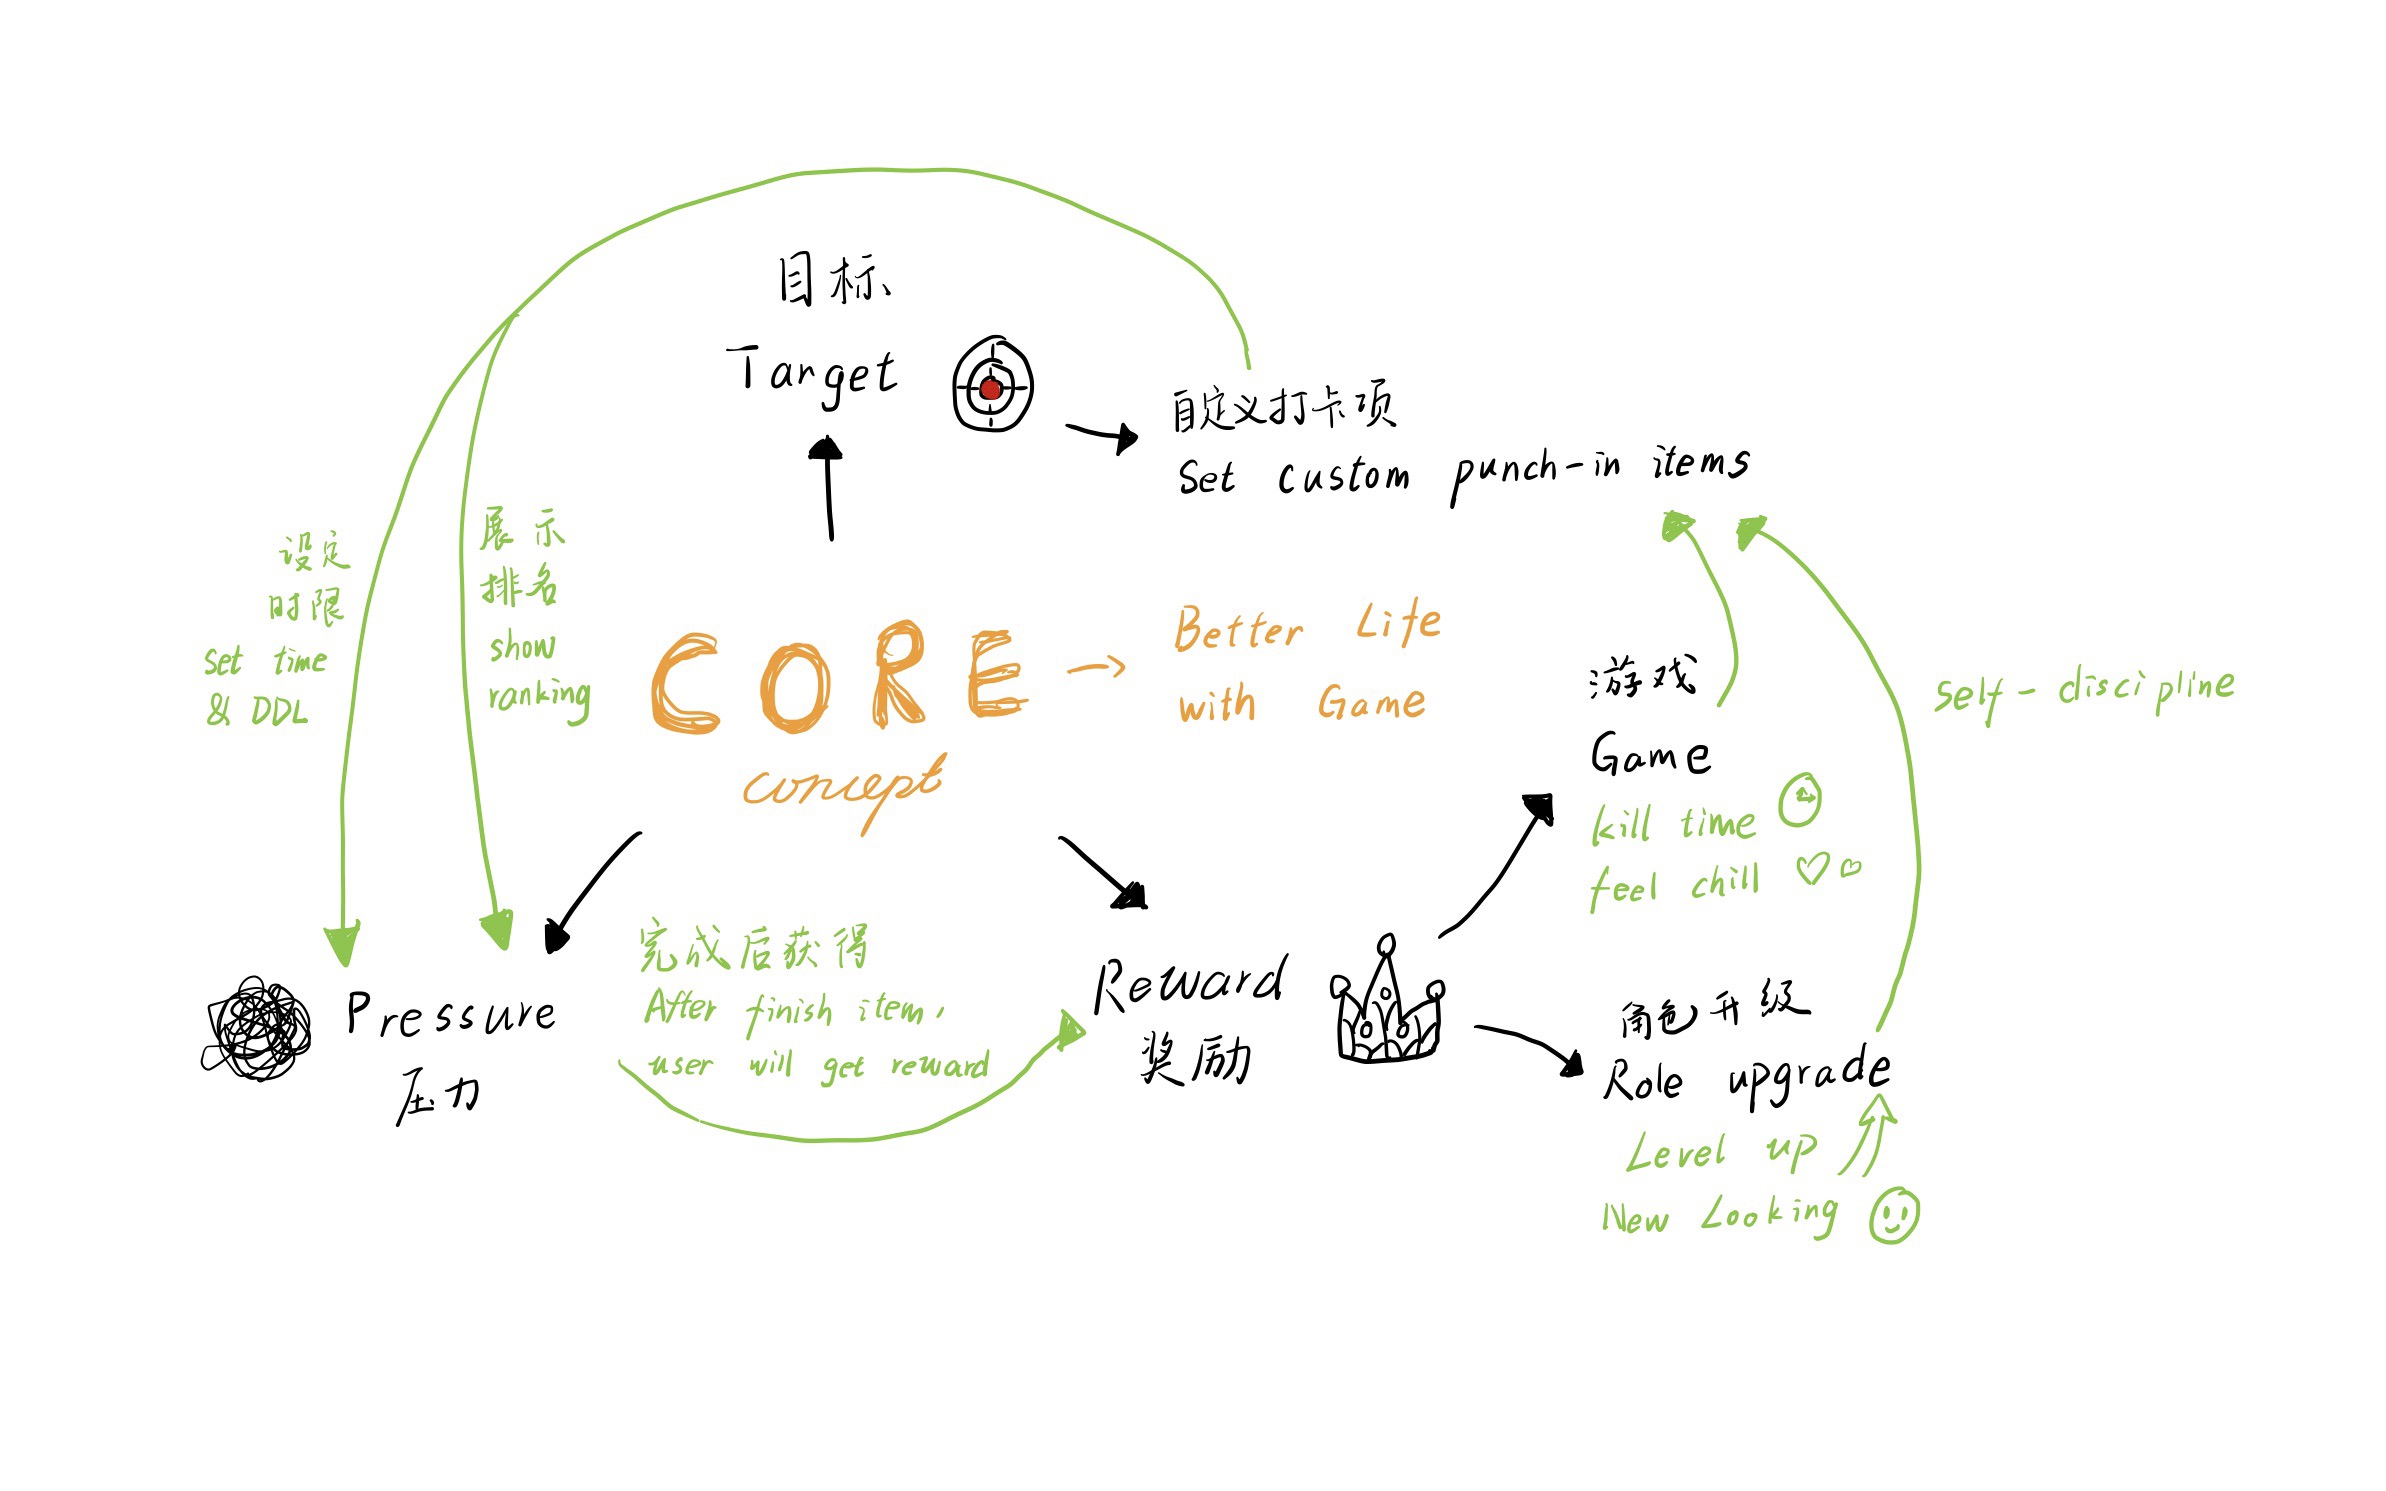 目标
Target
自定义打卡项
Set custom punch-in items
设定
时限
set time
& DDL
展示
排名
show
ranking
CORE
concept
Better Life
with Game
游戏
Game
kill time
feel chill
self-discipline
Pressure
压力
完成后获得
After finish item,
user will get reward
Reward
奖励
角色升级
Role upgrade
Level up
New Looking